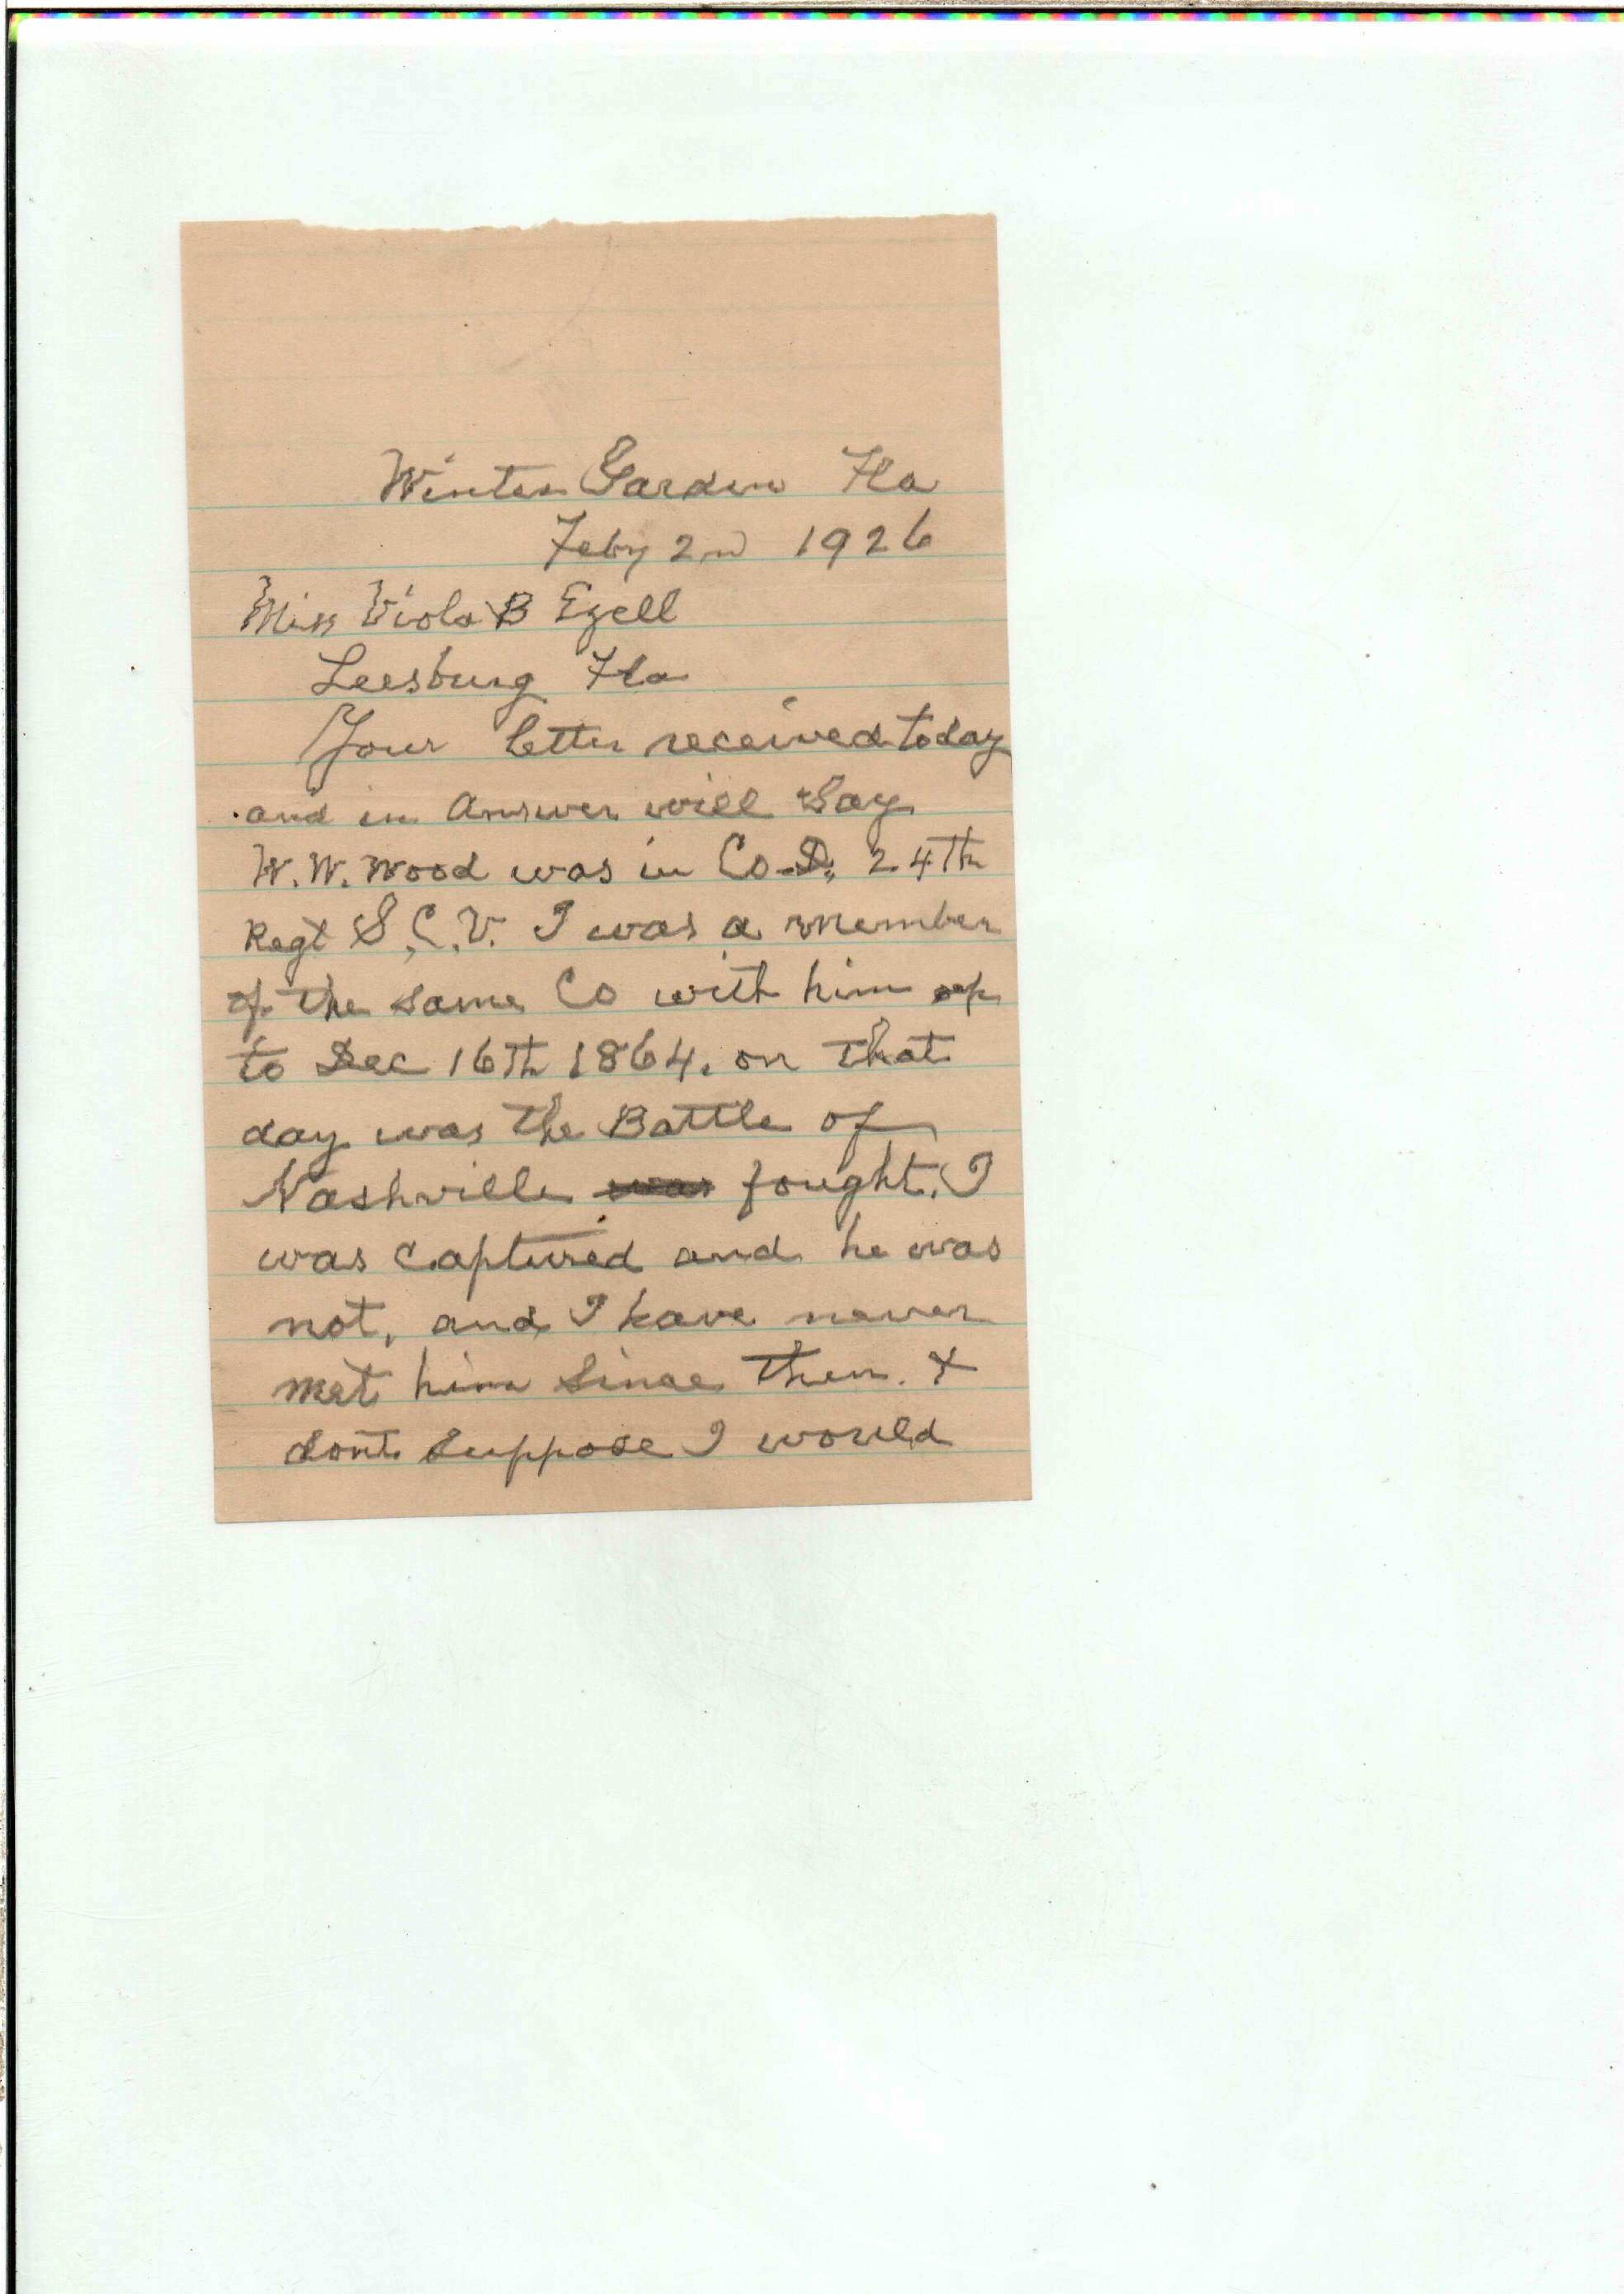 Winter Garden Fla
Feby 2nd 1926
Miss Viola B Ezell
Leesburg Fla
Your letter received today
and in Answer will Say
W. W. Wood was in Co. D, 24Th
Regt S. C. V. I was a member
of the same Co with him up
to Dec 16Th 1864. on That
day was The Battle of
Nashville was fought. I
was Captured and he was
not, and I have never
met him Since Then. &
dont Suppose I would